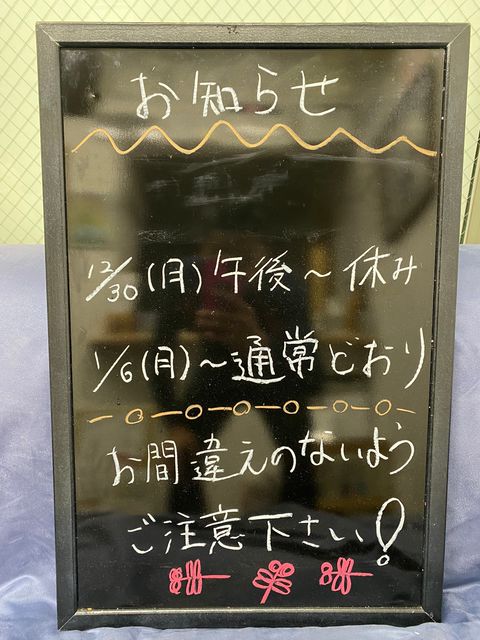 お知らせ
12/30(月)午後～休み
1/6(月)～通常どおり
お間違えのないよう
ご注意下さい!